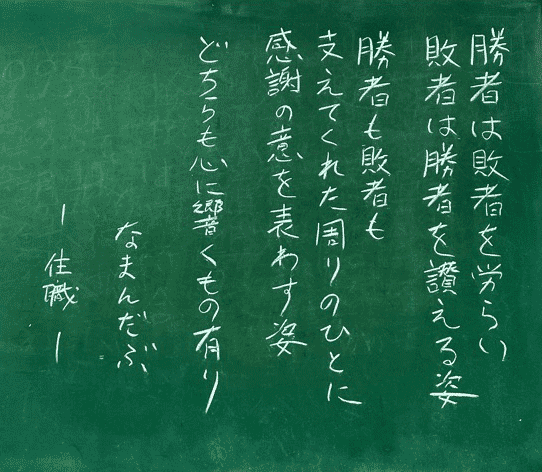 勝者は敗者を労らい
敗者は勝者を讃える姿
勝者も敗者も
支えてくれた周りのひとに
感謝の意を表わす姿
どちらも心に響くもの有り
なまんだぶ
ー住職ー